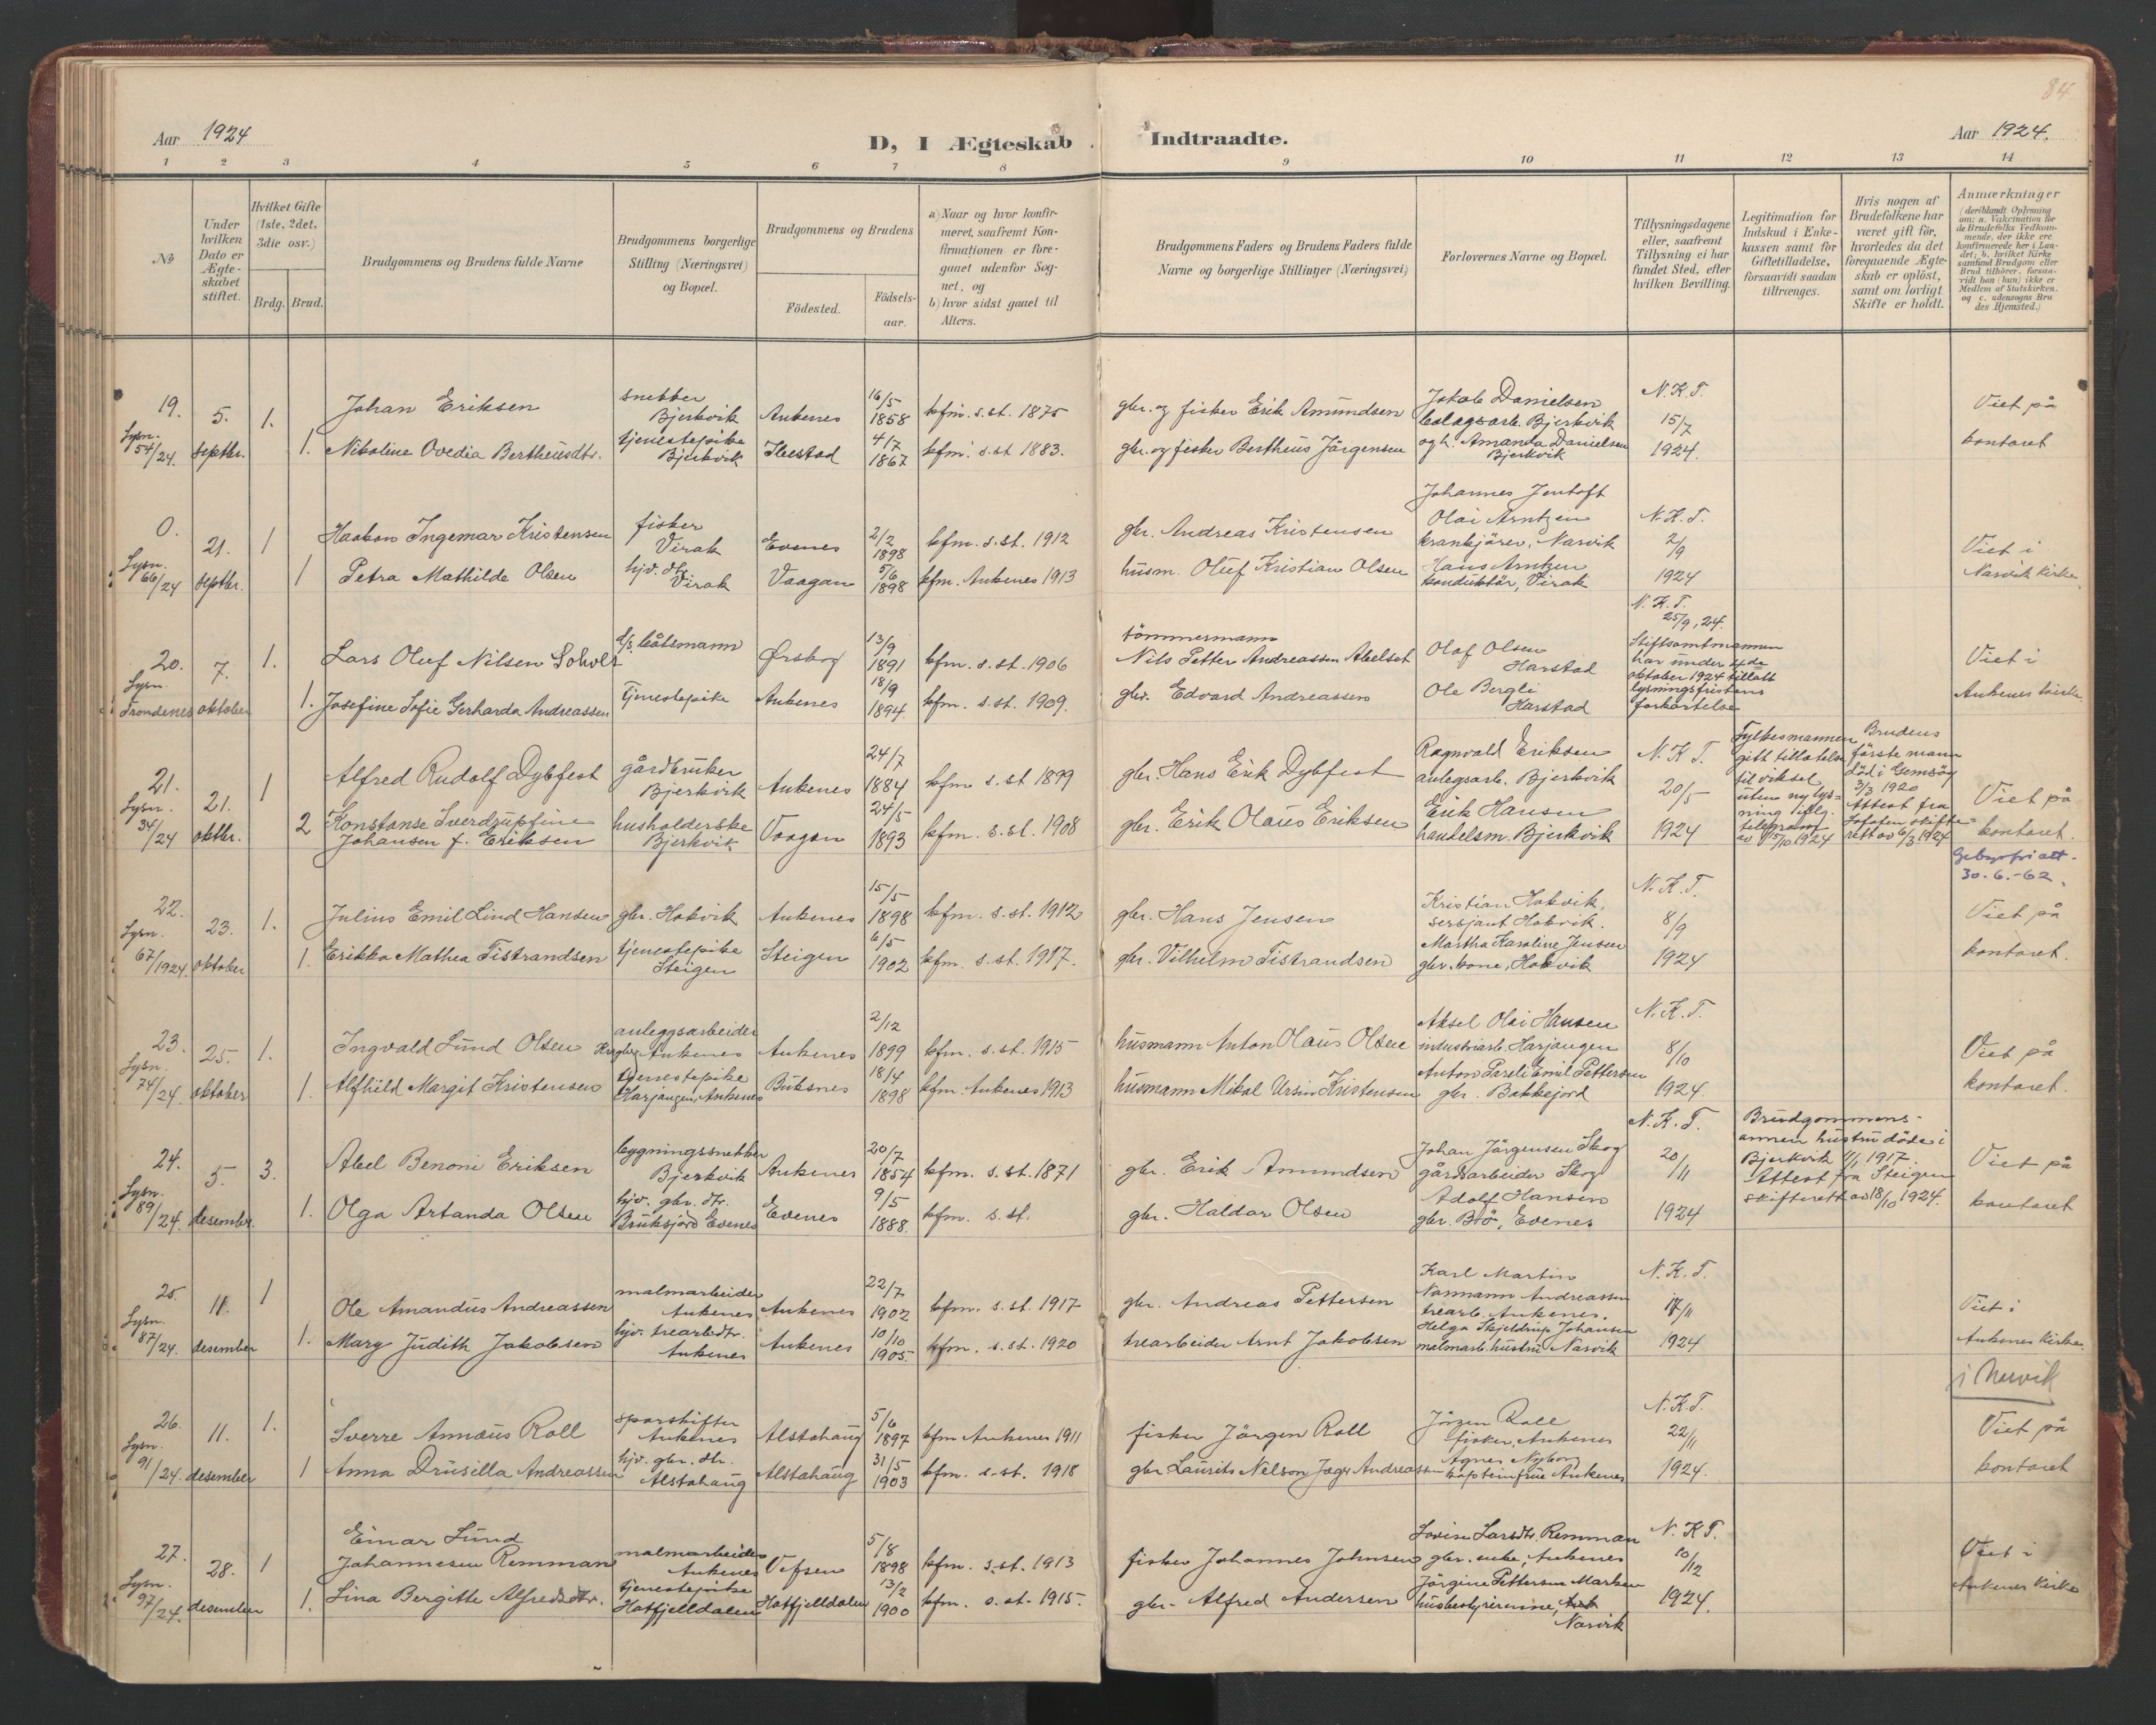 84
Aar 1924
D, I Ægteskab Indtraadte.
Aar 1924.
1 2 3 4 5 6 7 8 9 10 11 12 13 14
No
Under hvilken Dato er Ægteskabet stiftet.
Hvilket Gifte (1ste, 2det, 3die osv.)
Brdg. Brud.
Brudgommens og Brudens fulde Navne
Brudgommens borgerlige Stilling (Næringsvei) og Bopæl.
Brudgommens og Brudens
Födested.
Födselsaar.
a) Naar og hvor konfirmeret, saafremt Konfirmationen er foregaaet udenfor Sognet, og
b) hvor sidst gaaet til Alters.
Brudgommens Faders og Brudens Faders fulde Navne og borgerlige Stillinger (Næringsvei)
Forlovernes Navne og Bopæl.
Tillysningsdagene eller, saafremt Tillysning ei har fundet Sted, efter hvilken Bevilling.
Legitimation for Indskud i Enkekassen samt for Giftetilladelse, forsaavidt saadan tiltrænges.
Hvis nogen af Brudefolkene har været gift för, hvorledes da det foregaaende Ægteskab er oplöst, samt om lovligt Skifte er holdt.
Anmærkninger
(deriblandt Oplysning om: a. Vakcination for de Brudefolks Vedkommende, der ikke ere konfirmerede her i Landet; b. hvilket Kirkesamfund Brudgom eller Brud tilhörer, forsaavidt han (hun) ikke er Medlem af Statskirken. og c. udensogns Brudes Hjemsted.)
19. Lysn. 54/24. 5. septbr. 1.
Johan Eriksen snekker Bjerkvik Ankenes 16/5 1858 kfm. s. st. 1875 gbr. og fisker Erik Amundsen Jakob Danielsen Bjerkvik N.K.T. 15/7 1924. Viet på kontoret
1. Nikoline Ovedia Bertheusdtr. tjenestepike Bjerkvik Ibestad 4/7 1867 kfm. s. st. 1883. gbr. og fisker Bertheus Jörgensen og h. Amanda Danielsen Bjerkvik
0. Lysn. 66/24 21. septbr. 1
Haakon Ingemar Kristensen fisker Virak Evenes 2/2 1898 kfm. s. st. 1912 gbr. Andreas Kristensen Johannes Jentoft Olai Arntzen krankjörer, Narvik N.K.T. 2/9 1924 Viet i Narvik kirke.
1 Petra Mathilde Olsen hjv. dtr. Virak Vaagan 5/6 1898 kfm. Ankenes 1913 husm. Oluf Kristian Olsen Hans Arntzen konduktör, Virak
20. Lysn. Trondenes 7. oktober 1.
Lars Oluf Nilsen d/s. båtsmann 13/9 1891 kfm. s. st. 1906 tömmermann Nils Petter Andreassen Olaf Olsen Harstad N.K.T. 25/9, 24. Stiftsamtmannen har under 4de oktober 1924 tillatt lysningsfristens forkortelse Viet i Ankenes kirke.
1. Josefine Sofie Gerharda Andreassen Tjenestepike Ankenes 18/9 1894. kfm. s. st. 1909. gbr. Edvard Andreassen Ole Bergli Harstad
21. Lysn. 34/24 21. oktbr. 1
Alfred Rudolf Dybfest gårdbruker Bjerkvik Ankenes 24/7 1884 kfm s. st 1899 gbr. Hans Erik Dybfest Ragnvald Eriksen anlegsarb. Bjerkvik N.K.T. 20/5 1924 Fylkesmannen gitt tillatelse til viksel uten ny lysning iflg. telegram av 15/10 1924 Brudens förste mann död i Gimsöy 3/3 1920 Attest fra Lofoten skifterett av 6/3 1924 Viet på kontoret.
2 Konstanse Sverdrupfine Johansen f. Eriksen husholderske Bjerkvik Vaagan 24/5 1893 kfm. s. st. 1908 gbr. Erik Olaus Eriksen Erik Hansen handelsm. Bjerkvik
Gebyrfri att. 30.6.-62.
22. Lysn. 67/1924 23. oktober 1.
Julius Emil Lind Hansen gbr. Hokvik Ankenes 15/5 1898 kfm. s. st. 1912 gbr. Hans Jensen Kristian Hokvik, sersjant Hokvik. N.K.T. 8/9 1924 Viet på kontoret.
1. Erikka Mathea Tistrandsen tjenestepike Steigen Steigen 6/5 1902 kfm. s. st. 1917. gbr. Vilhelm Tistrandsen Martha Karoline Jensen gbr. kone, Hokvik
23. Lysn. 74/24. 25. oktober 1.
Ingvald Lund Olsen anleggsarbeider Ankenes Ankenes 2/12 1899 kfm. s. st. 1915 husmann Anton Olaus Olsen Aksel Olai Hansen industriarb. Harjangen N.K.T. 8/10 1924. Viet på kontoret.
1. Alfhild Margit Kristensen tjenestepike Harjangen, Ankenes Buksnes 18/4 1898 kfm. Ankenes 1913 husmann Mikal Ursin Kristensen Anton Pareli Emil Pettersen gbr. Bakkejord
24. Lysn. 89/24. 5. desember. 3.
Abel Benoni Eriksen bygningssnekker Bjerkvik Ankenes 20/7 1854 kfm. s. st. 1871 gbr. Erik Amundsen Johan Jörgensen Skog gårdsarbeider Skog N.K.T. 20/11 1924 Brudgommens annen hustru döde i Bjerkvik 1/1 1917. Attest fra Steigen skifterett av 18/10 1924. Viet på kontoret
1. Olga Artanda Olsen hjv. gbr. dtr. Evenes Evenes 9/5 1888. kfm. s. st. gbr. Haldor Olsen Adolf Hansen gbr. Bö, Evenes
25. Lysn. 87/24. 11. desember 1
Ole Amandus Andreassen malmarbeider Ankenes Ankenes 22/7 1902 kfm. s. st. 1917 gbr. Andreas Pettersen Karl Martin Normann Andreassen trearb. Ankenes. N.K.T. 17/11 1924 Viet i Ankenes kirke.
1. Mary Judith Jakobsen hjv. trearb.dtr. Ankenes Ankenes 10/10 1905. kfm. s. st. 1920 trearbeider Arnt Jakobsen Helga Skjeldrup Johansen malmarb. hustru Narvik
i Narvik
26. Lysn. 91/24. 11. desember 1.
Sverre Annæus Roll sporskifter Ankenes Alstahaug 5/6 1897 kfm Ankenes 1911 fisker Jörgen Roll Jörgen Roll fisker, Ankenes N.K.T. 22/11 1924. Viet på kontoret
1 Anna Drusilla Andreassen hjv. gbr. dtr. Alstahaug Alstahaug 31/5 1903 kfm. s. st. 1918 gbr Laurits Nelson Jæger Andreassen Agnes Nyborg kapteinfrue Ankenes
27. Lysn. 97/24. 28. desember 1
Einar Lund Johannesen Remman malmarbeider Ankenes Vefsen 5/8 1898 kfm. s. st. 1913 fisker Johannes Johnsen Lovise Larsdtr. Remman gbr. enke, Ankenes N.K.T. 10/12 1924. Viet i Ankenes kirke
1. Lina Bergitte Alfredsdtr. tjenestepike Hatfjelldalen Hatfjelldalen 13/2 1900 kfm. s. st. 1915. gbr. Alfred Andersen Jörgine Pettersen husbestyrerinne, Narvik